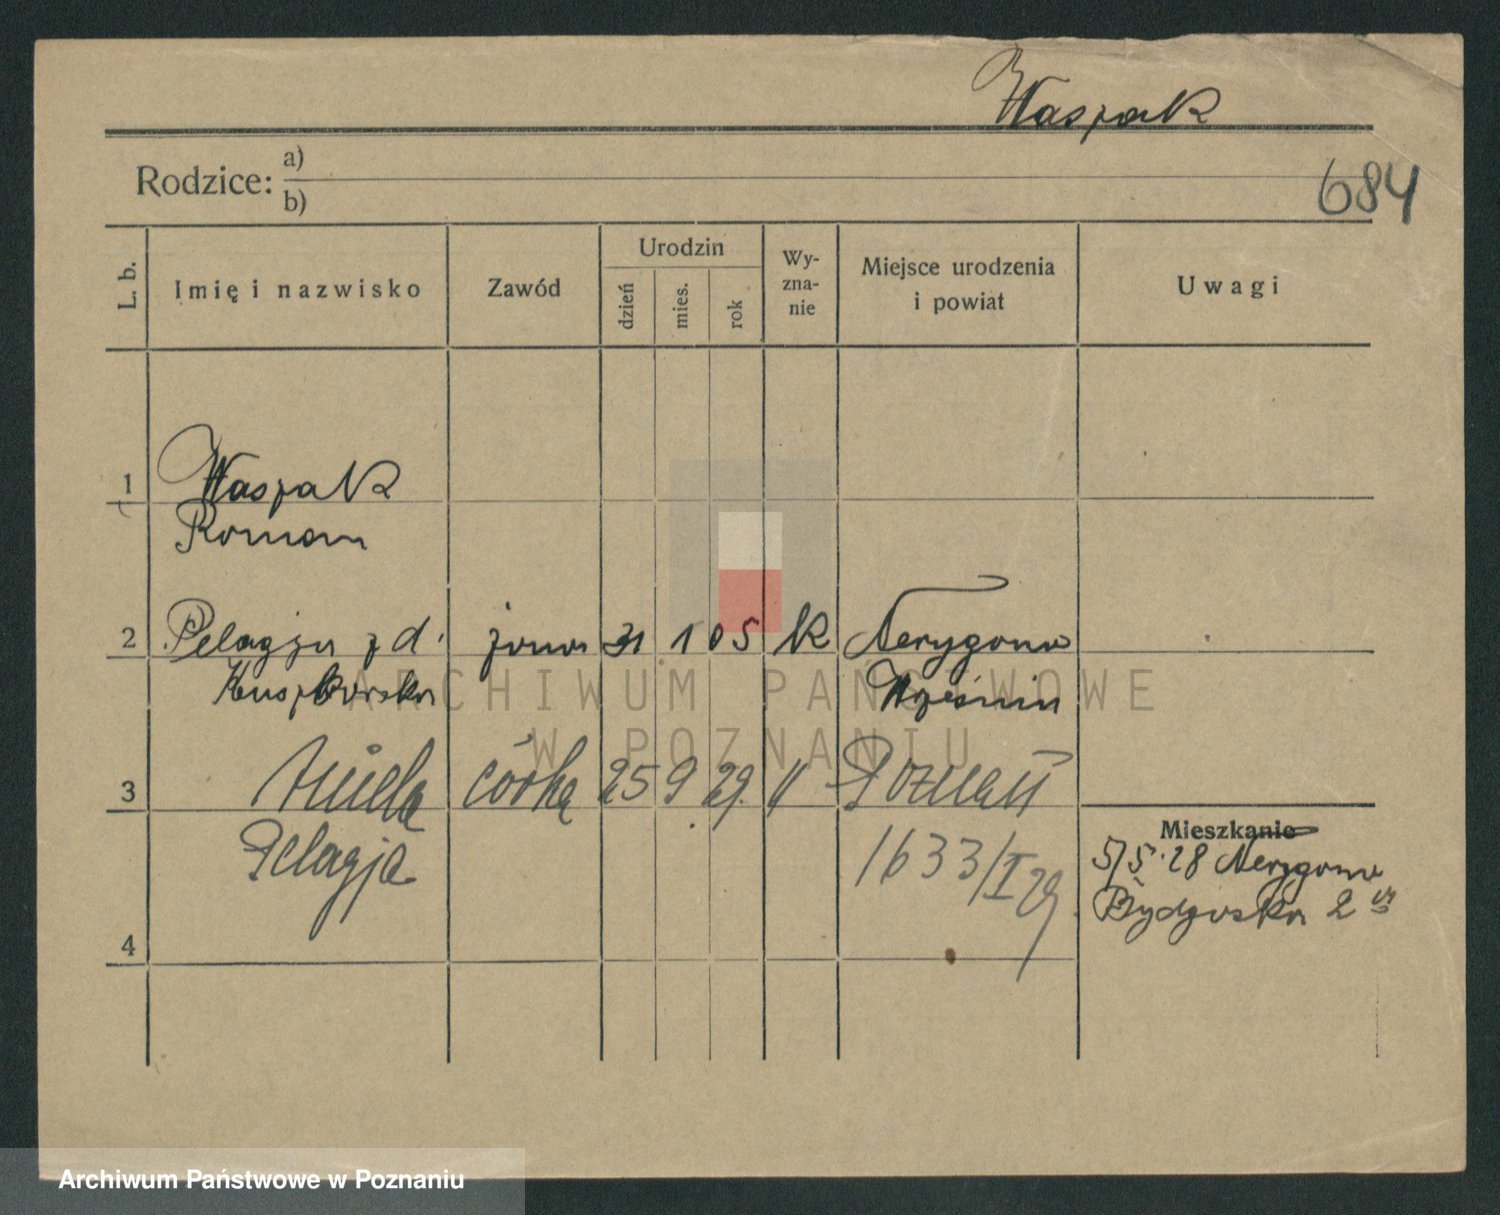 Waszak
684
Rodzice: a)
b)
L. b.
Imię i nazwisko
Zawód
Urodzin
dzień
mies.
rok
Wy-
zna-
nie
Miejsce urodzenia
i powiat
Uwagi
1 Waszak
Roman
2 Pelagja z d. żona 31 1 05 K
Września
3 córka 25 9 29. " Poznań
Pelagja
1633/I 29
Mieszkanie
5/5 28
Bydgoska 2
4
ARCHIWUM PAŃSTWOWE
W POZNANIU
Archiwum Państwowe w Poznaniu